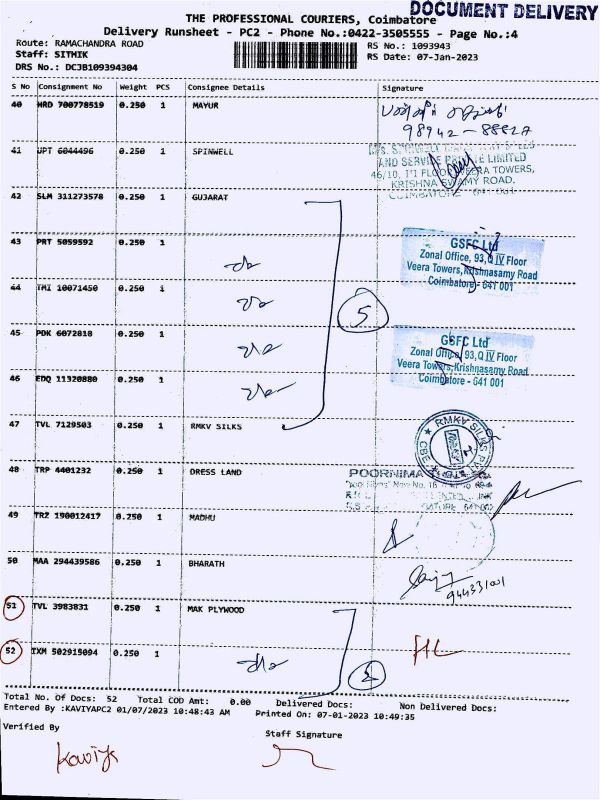 DOCUMENT DELIVERY
THE PROFESSIONAL COURIERS, Coimbatore
Delivery Runsheet - PC2 - Phone No.:0422-3505555 - Page No.:4
Route: RAMACHANDRA ROAD
Staff: SITHIK
DRS No.: DCJB109394304
RS No.: 1093943
RS Date: 07-Jan-2023
S No Consignment No Weight PCS Consignee Details Signature
40 HRD 700778519 0.250 1 MAYUR
98942-
41 JPT 6044496 0.250 1 SPINWELL
AND SERVICE PRIVATE LIMITED
46/10, 1'I FLOOR VEERA TOWERS,
KRISHNA SWAMY ROAD.
42 SLM 311273578 0.250 1 GUJARAT
43 PRT 5059592 0.250 1
GSFC Ltd
Zonal Office, 93, Q IV Floor
Veera Towers, Krishnasamy Road
Coimbatore - 641 001
44 TMI 10071450 0.250 1
5
45 PDK 6072818 0.250 1
GSFC Ltd
Zonal Office, 93, Q IV Floor
Veera Towers, Krishnasamy Road
Coimbatore - 641 001
46 EDQ 11320880 0.250 1
47 TVL 7129503 0.250 1 RMKV SILKS
RMKV SILKS
CBE
48 TRP 4401232 0.250 1 DRESS LAND
POORNIMA
49 TRZ 190012417 0.250 1 MADHU
50 MAA 294439586 0.250 1 BHARATH
51 TVL 3983831 0.250 1 MAK PLYWOOD
52 IXM 502915094 0.250 1
2
Total No. Of Docs: 52 Total COD Amt: 0.00 Delivered Docs: Non Delivered Docs:
Entered By :KAVIYAPC2 01/07/2023 10:48:43 AM Printed On: 07-01-2023 10:49:35
Verified By
Staff Signature
Kaviya